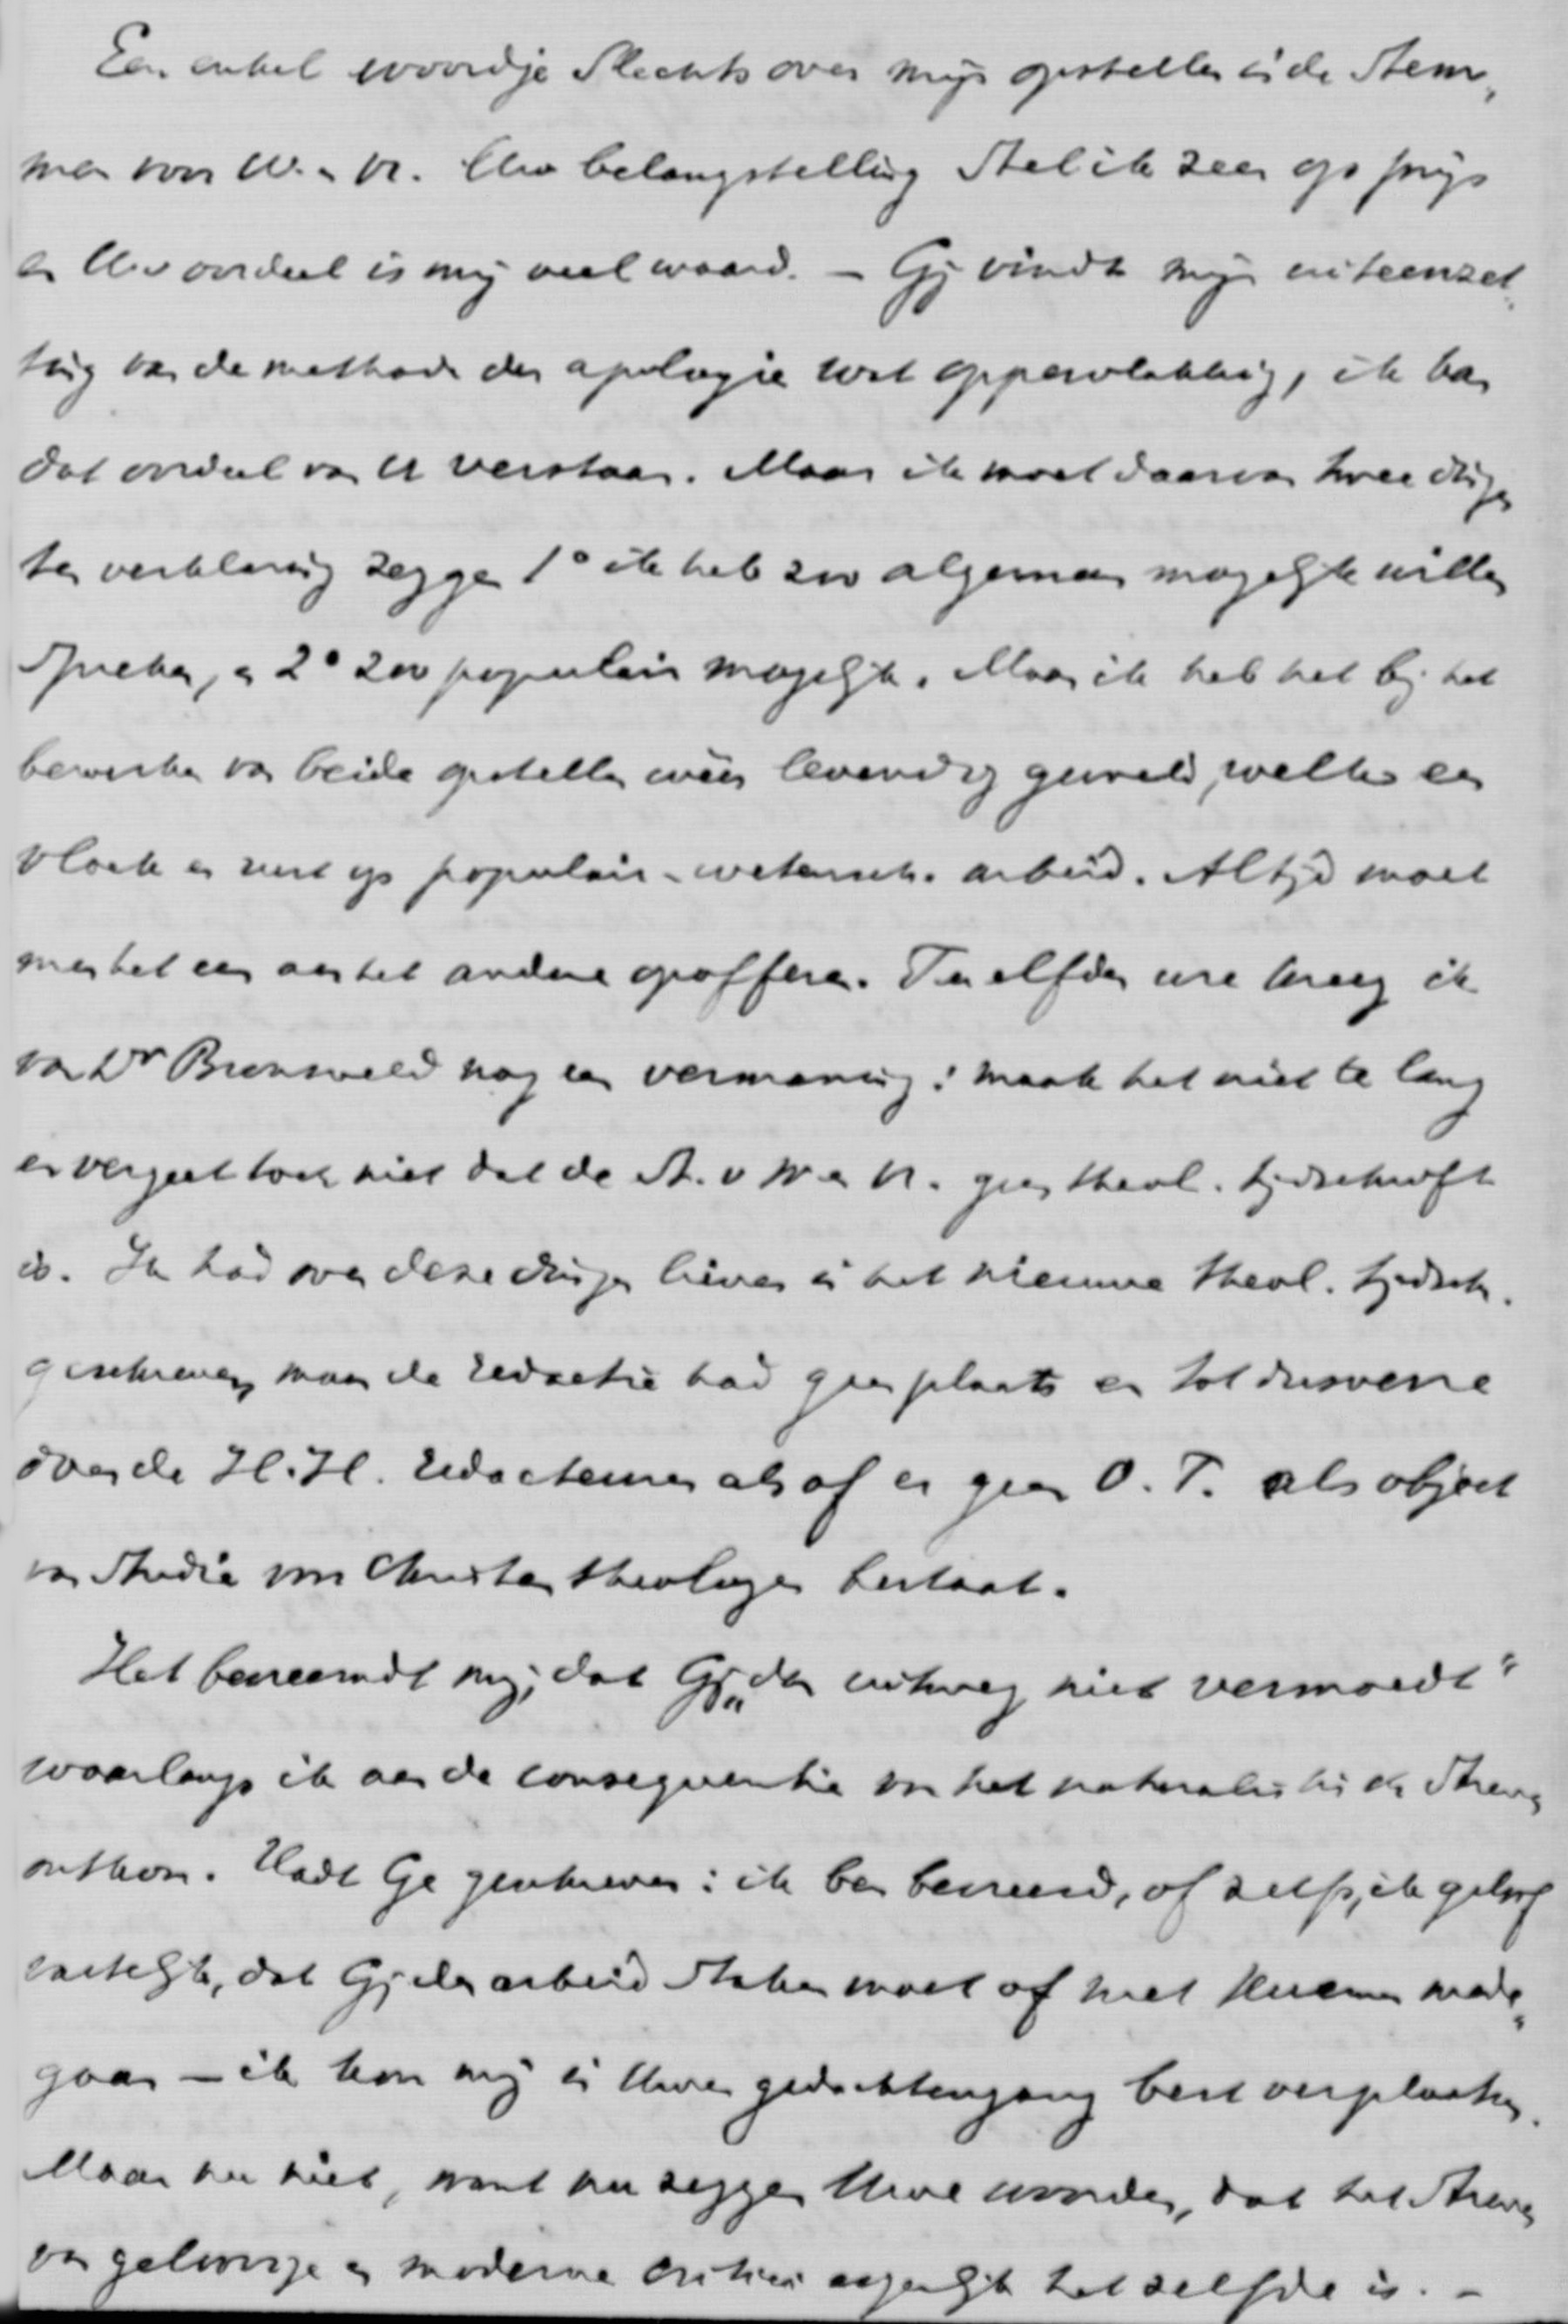 Een enkel woordje slechts over mijn opstellen in de Stem„
men voor W. en Vr. Uwe belangstelling stel ik zeer op prijs
en Uw oordeel is mij veel waard. – Gij vindt mijn uiteenzet„
ting van de methode der apologie wat oppervlakkig, ik kan
dat oordeel van U verstaan. Maar ik moet daarvan twee dingen
ter verklaring zeggen 1° ik heb zoo algemeen mogelijk willen
spreken, en 2° zoo populair mogelijk. Maar ik heb het bij het
bewerken van beide opstellen weer levendig gevoeld, welk een
vloek er rust op populair-wetensch. arbeid. Altijd moet
men het een aan het andere opofferen. Ter elfder ure kreeg ik
van Dr Bronsveld nog een vermaning: maak het niet te lang
en vergeet toch niet dat de St. v W en Vr. geen theol. tijdschrift
is. Ik had over deze dingen liever in het nieuwe theol. tijdsch.
geschreven, maar de redactie had geen plaats en tot dusverre
doen de H.H. redacteuren alsof er geen O. T. als object
van studie voor Christen theologen bestaat.
Het bevreemdt mij, dat Gij „den uitweg niet vermoedt"
waarlangs ik aan de consequentie van het naturalistisch streven
ontkom. Hadt Ge geschreven: ik ben bevreesd, of zelfs, ik geloof
vastelijk, dat Gij den arbeid staken moet of met Kuenen mede„
gaan – ik kon mij in Uwen gedachtengang best verplaatsen.
Maar nu niet, want nu zeggen Uwe woorden, dat het streven
van geloovige en moderne critici eigenlijk hetzelfde is. –